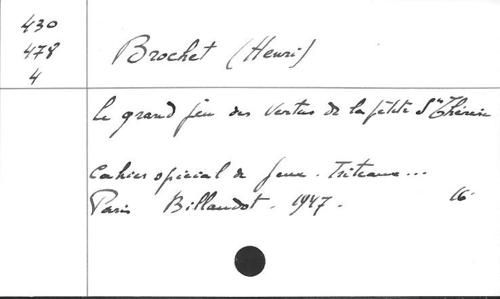 430
478
4
Brochet (Henri)
Le grand jeu des Vertus de la petite Ste Thérèse
Cahier spécial de Jeux. Tréteaux...
Paris Billaudot. 1947. 16°